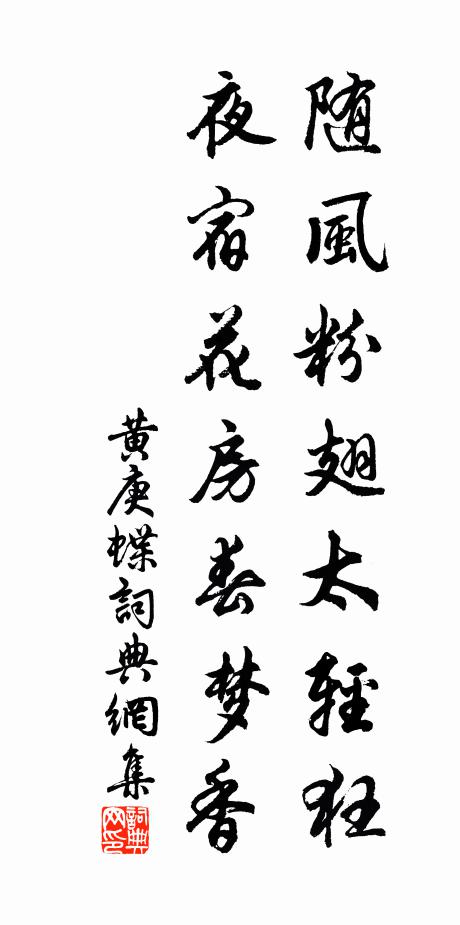 随風粉翅太輕狂
夜宿花房春梦香
黄庚蝶詞典網集
詞典网印